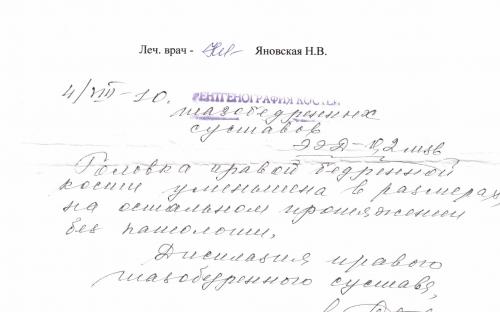 Леч. врач - Яновская Н.В.
4/VIII-10. РЕНТГЕНОГРАФИЯ КОСТЕЙ
тазобедренных
суставов
ЭЭД-0,2 мзв
Головка правой бедренной
кости уменьшена в размерах,
на остальном протяжении
без патологии.
Дисплазия правого
тазобедренного сустава,